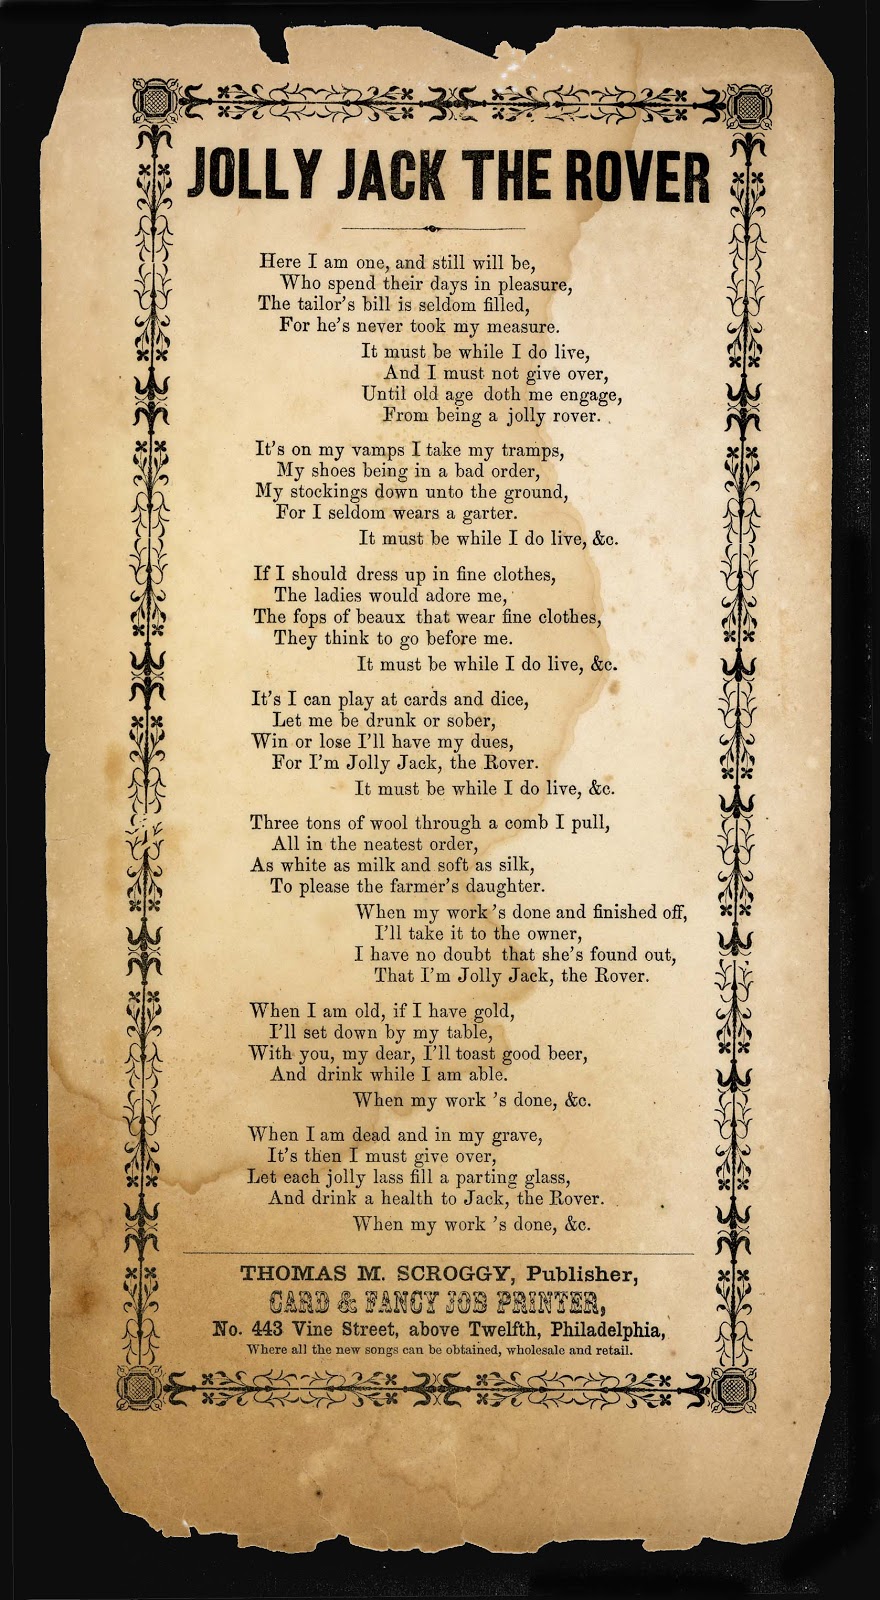 JOLLY JACK THE ROVER
Here I am one, and still will be,
Who spend their days in pleasure,
The tailor's bill is seldom filled,
For he's never took my measure.
It must be while I do live,
And I must not give over,
Until old age doth me engage,
From being a jolly rover.
It's on my vamps I take my tramps,
My shoes being in a bad order,
My stockings down unto the ground,
For I seldom wears a garter.
It must be while I do live, &c.
If I should dress up in fine clothes,
The ladies would adore me,
The fops of beaux that wear fine clothes,
They think to go before me.
It must be while I do live, &c.
It's I can play at cards and dice,
Let me be drunk or sober,
Win or lose I'll have my dues,
For I'm Jolly Jack, the Rover.
It must be while I do live, &c.
Three tons of wool through a comb I pull,
All in the neatest order,
As white as milk and soft as silk,
To please the farmer's daughter.
When my work 's done and finished off,
I'll take it to the owner,
I have no doubt that she's found out,
That I'm Jolly Jack, the Rover.
When I am old, if I have gold,
I'll set down by my table,
With you, my dear, I'll toast good beer,
And drink while I am able.
When my work 's done, &c.
When I am dead and in my grave,
It's then I must give over,
Let each jolly lass fill a parting glass,
And drink a health to Jack, the Rover.
When my work 's done, &c.
THOMAS M. SCROGGY, Publisher,
CARD & FANCY JOB PRINTER,
No. 443 Vine Street, above Twelfth, Philadelphia,
Where all the new songs can be obtained, wholesale and retail.